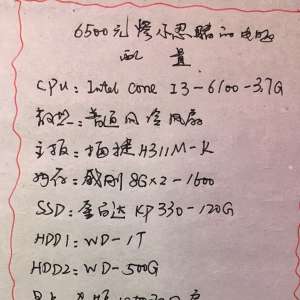 6500元 的电脑
配置
CPU: Intel Core I3-6100-3.7G
散热: 普通风冷风扇
主板: 梅捷H311M-K
内存: 威刚8G×2-1600
SSD: 金百达KP330-120G
HDD1: WD-1T
HDD2: WD-500G